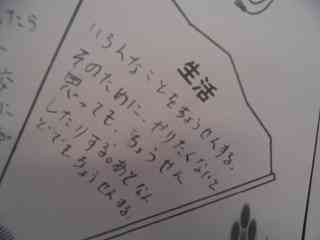 生活
いろんなことをちょうせんする。
そのために、やりたくないと
思っても、ちょうせん
したりする。あとなん
どでもちょうせんする
たら
に